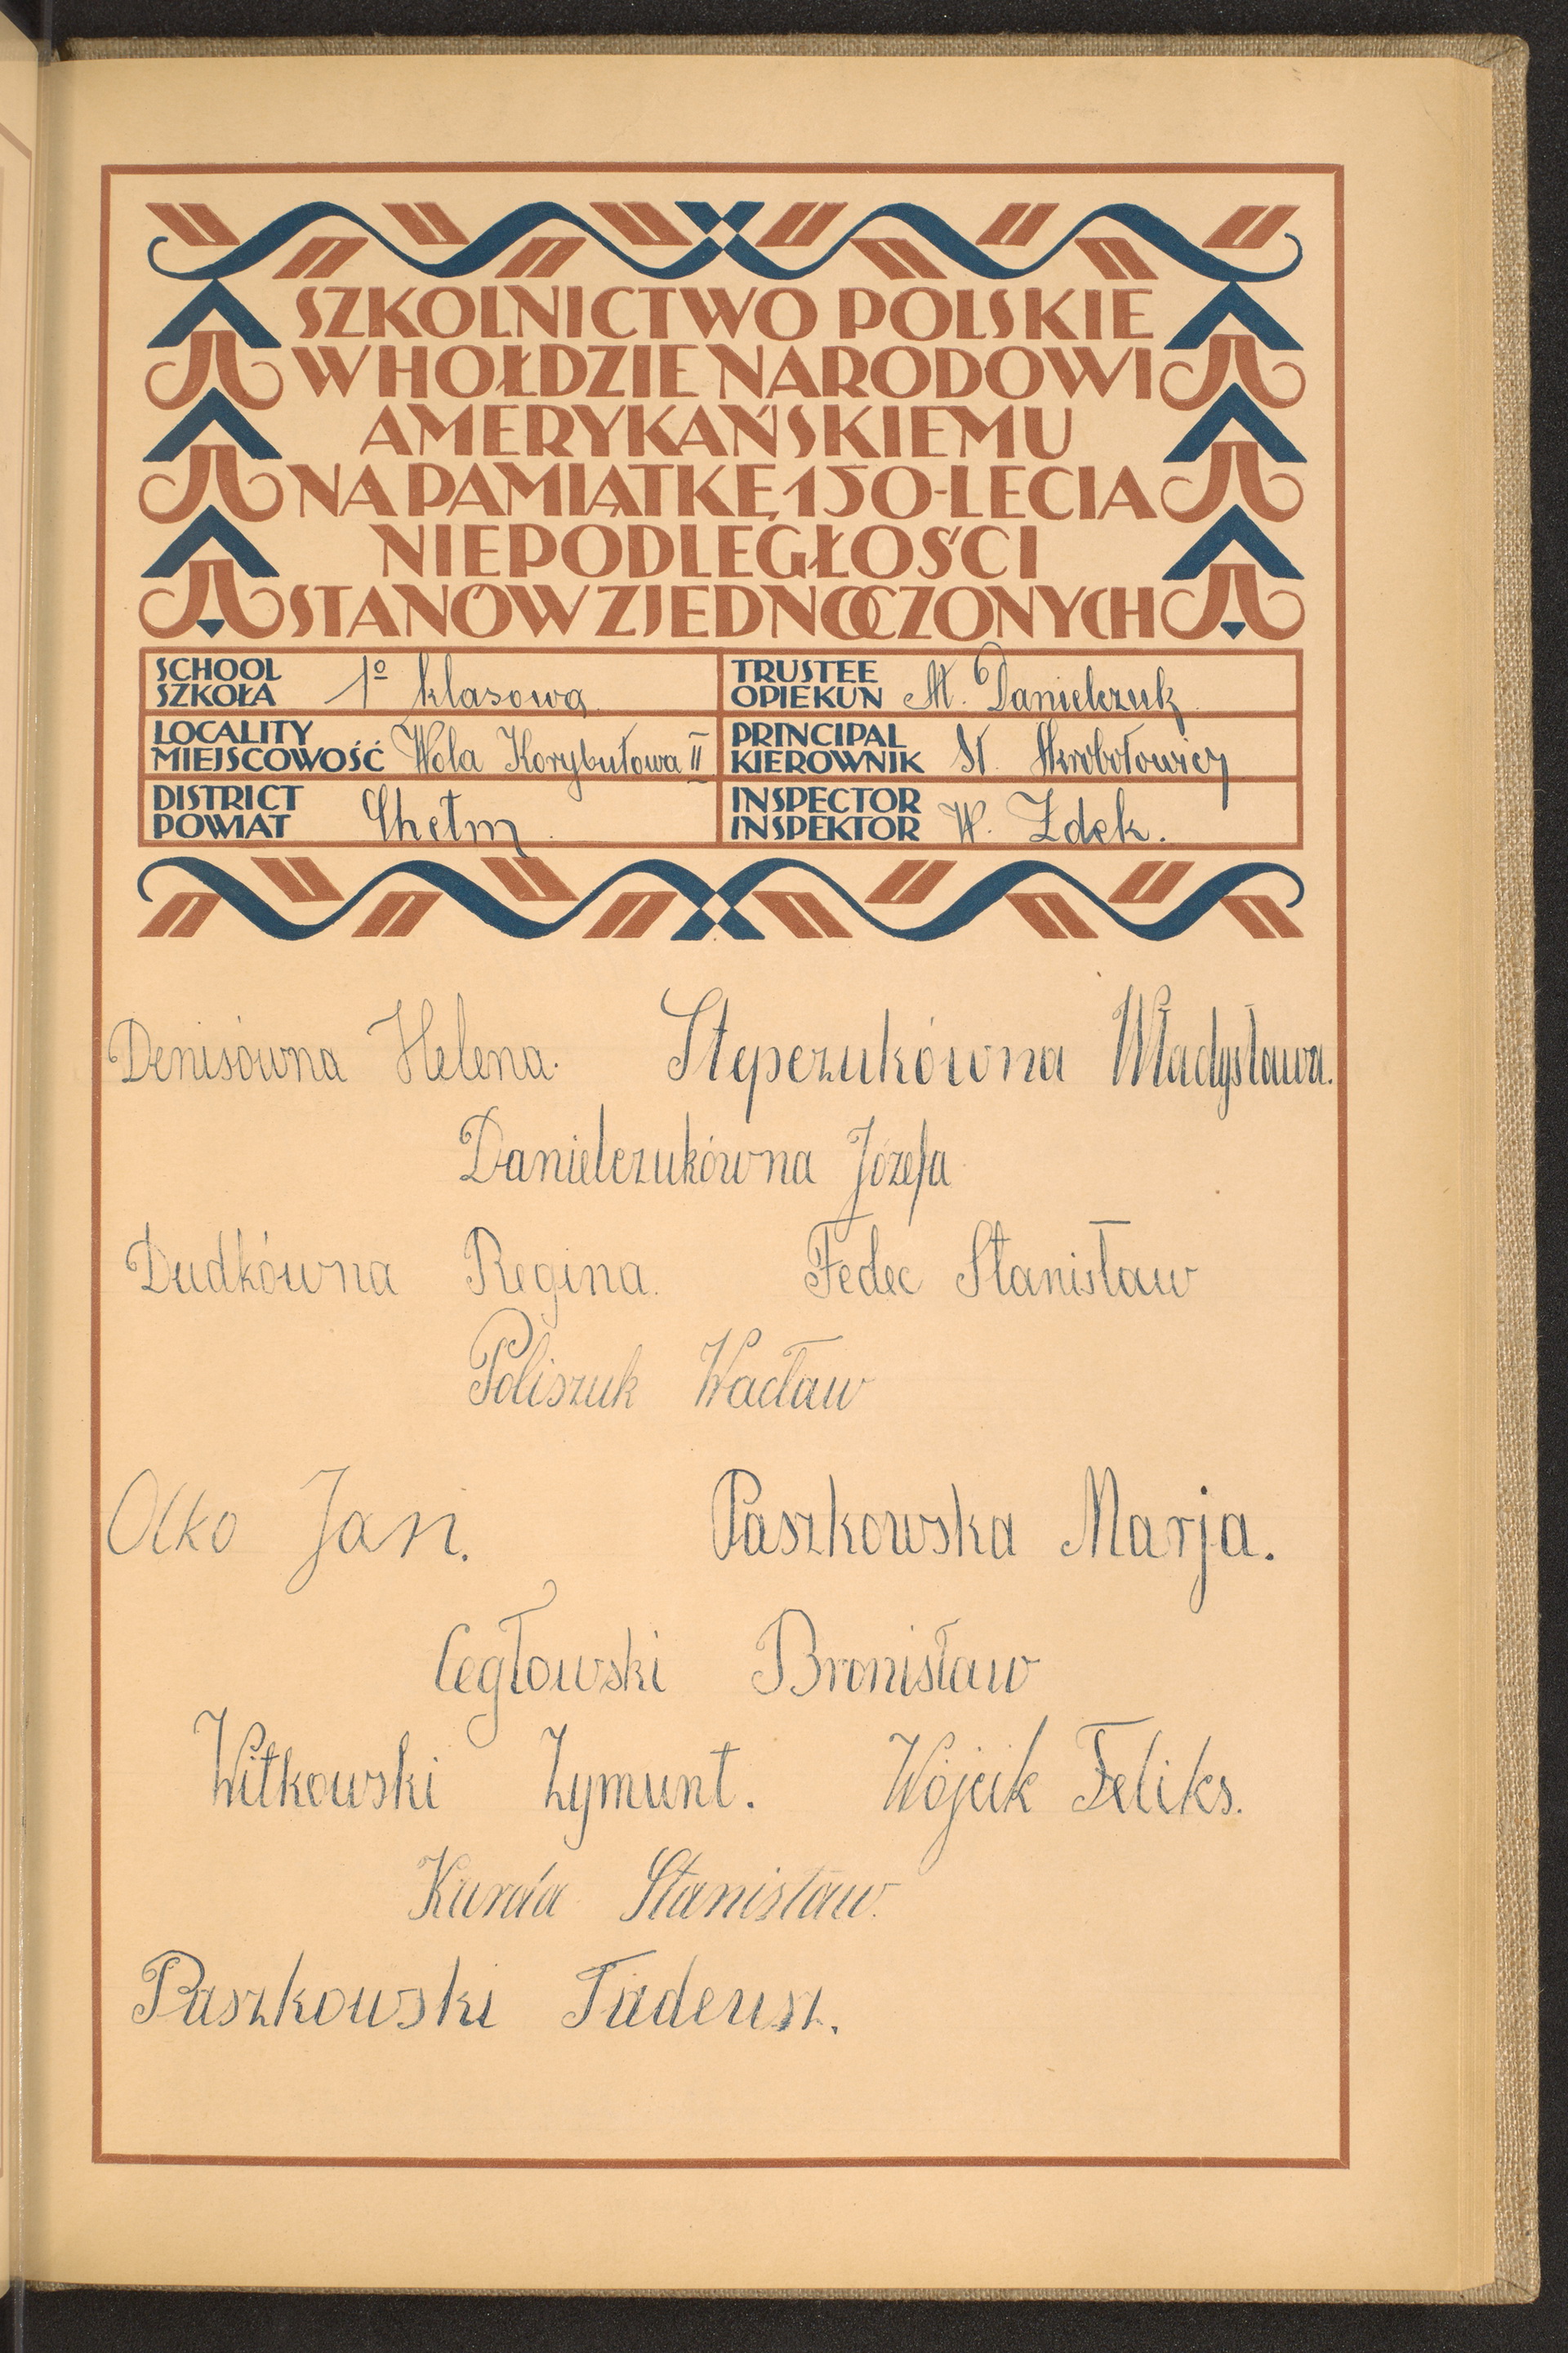 SZKOLNICTWO POLSKIE
W HOŁDZIE NARODOWI
AMERYKAŃSKIEMU
NA PAMIĄTKĘ 150-LECIA
NIEPODLEGŁOŚCI
STANÓW ZJEDNOCZONYCH
SCHOOL
SZKOŁA 1º klasowa
TRUSTEE
OPIEKUN M. Danielczuk
LOCALITY
MIEJSCOWOŚĆ Wola Korybutowa II
PRINCIPAL
KIEROWNIK St.
DISTRICT
POWIAT Chełm
INSPECTOR
INSPEKTOR W. Zdek.
Denisówna Helena. Stepczukówna Władysława.
Danielczukówna Józefa
Dudkówna Regina. Fedec Stanisław
Poliszuk Wacław
Olko Jan. Paszkowska Marja.
Cegłowski Bronisław
Witkowski Zymunt. Wójcik Feliks.
Stanisław.
Paszkowski Tadeusz.